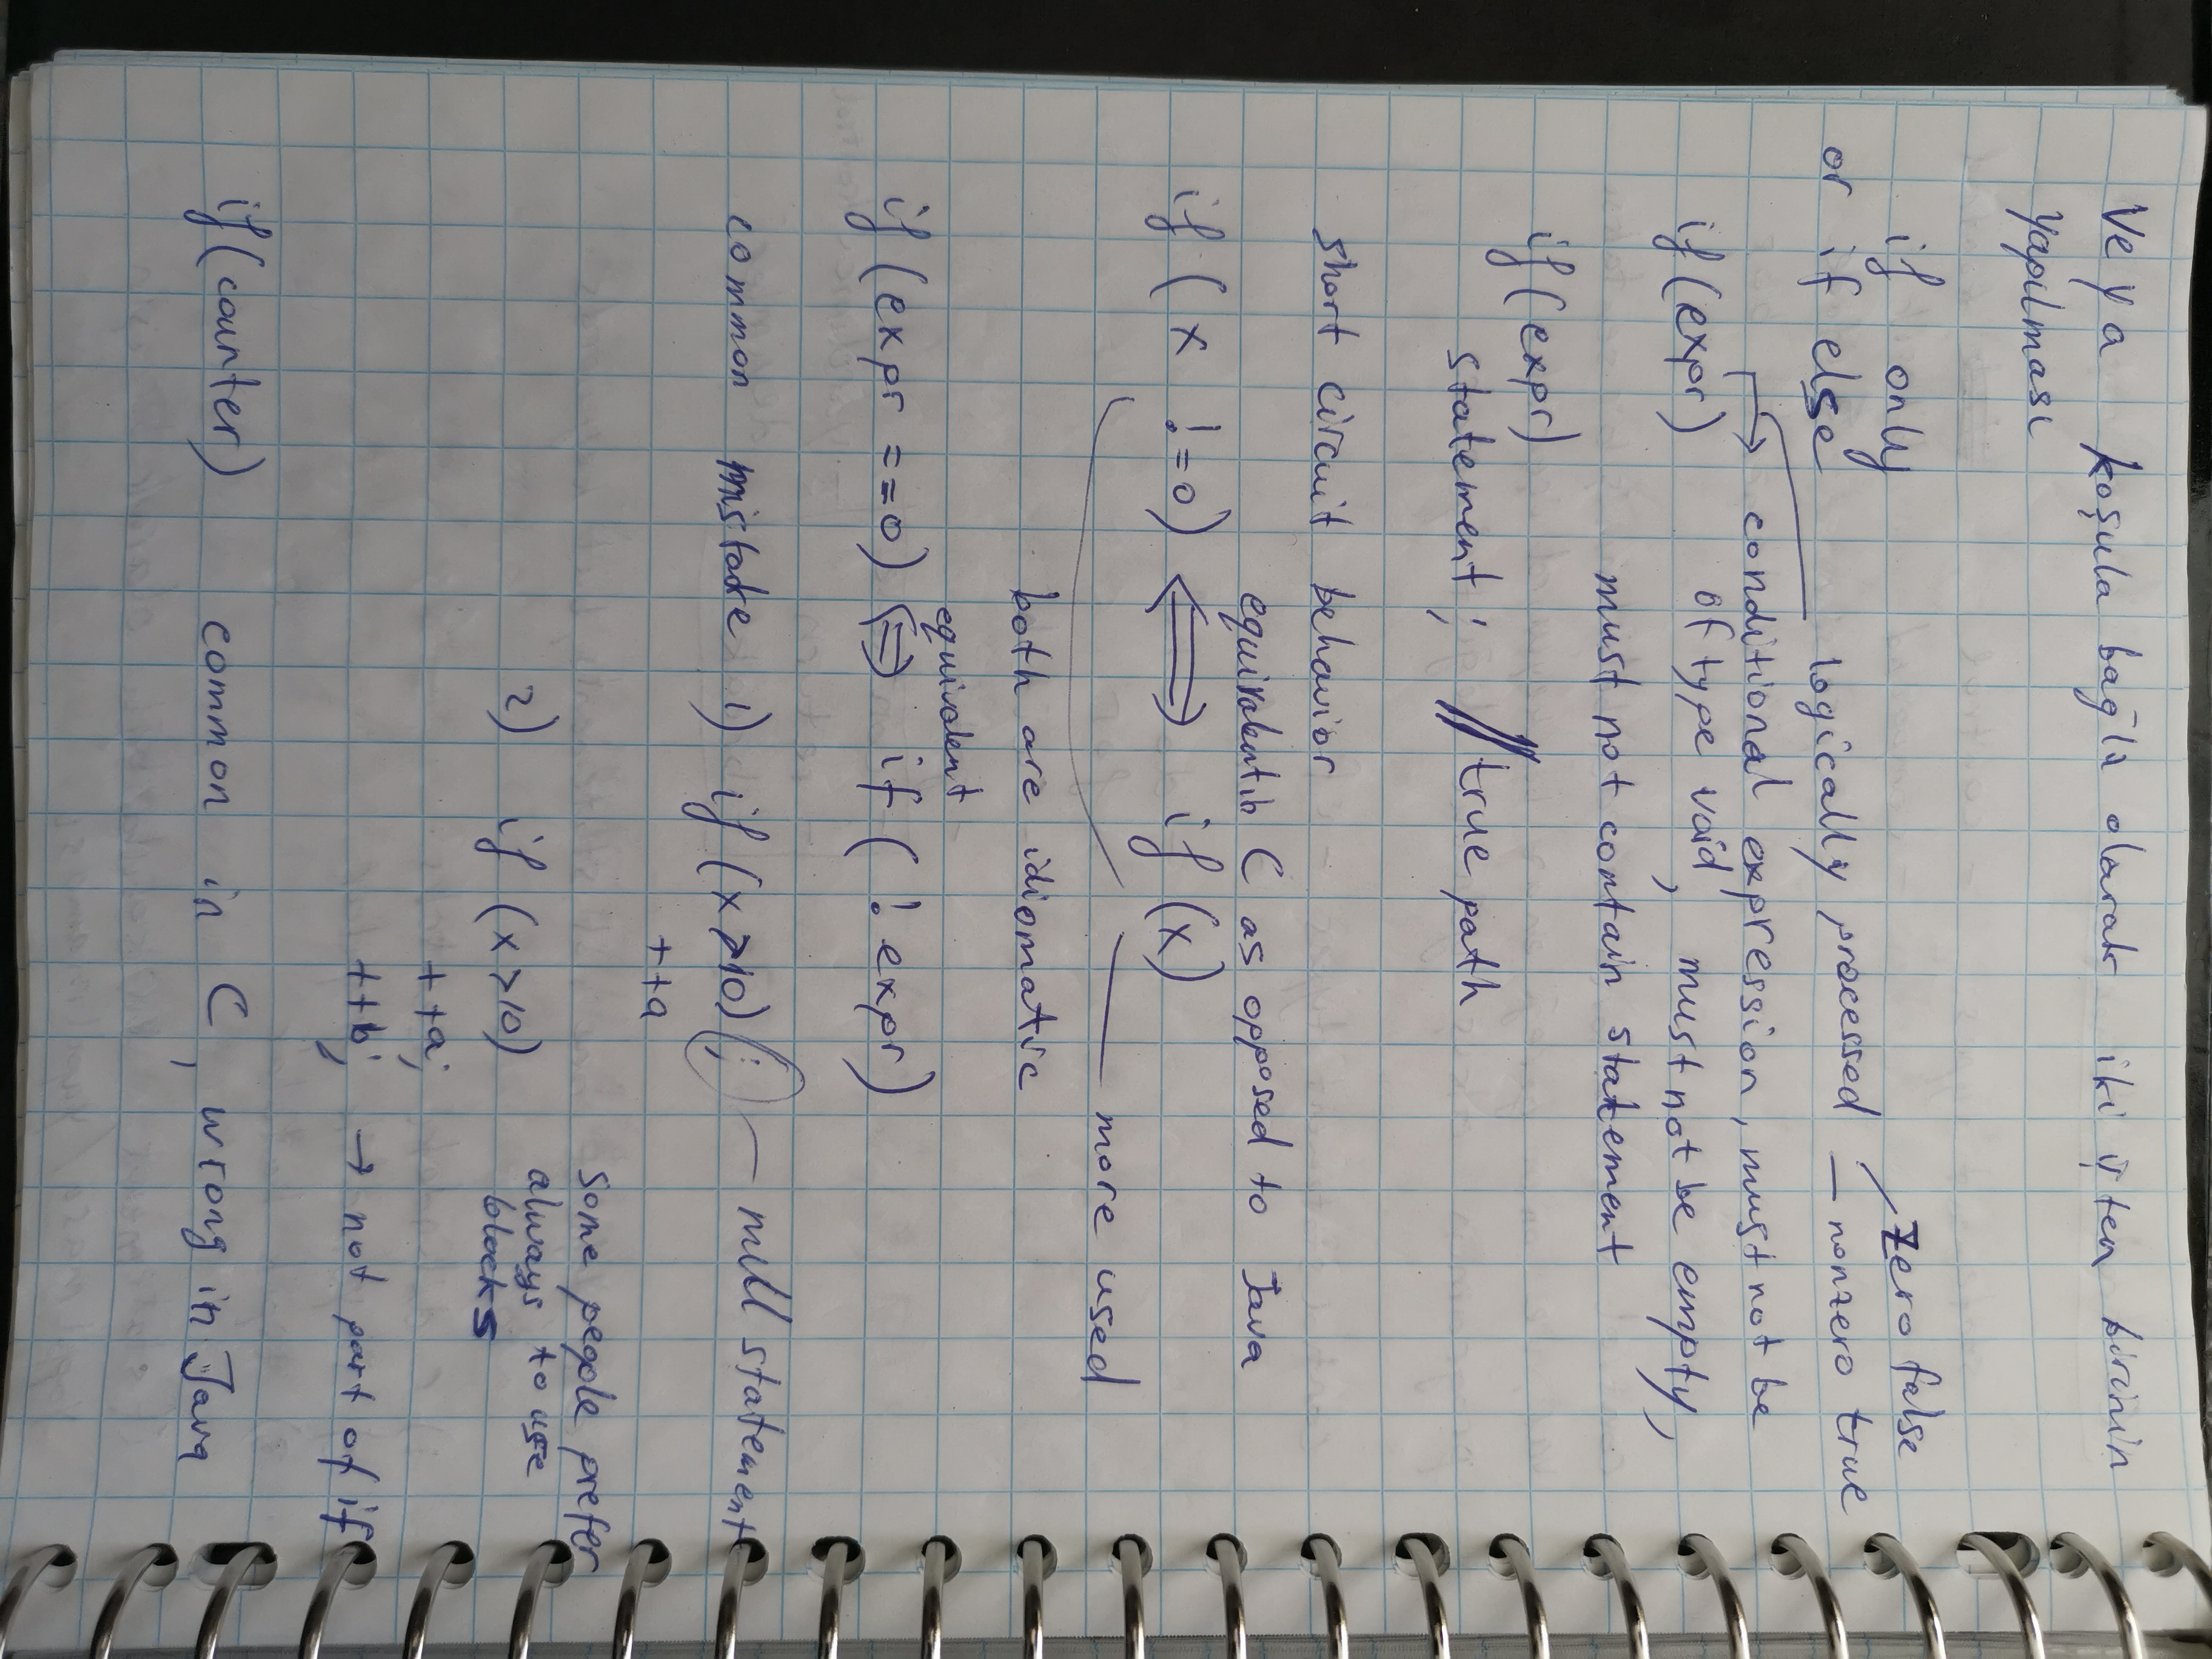 Veya koşula bağlı olarak iki işten birinin
yapılması
if only
or if else
logically processed
zero false
nonzero true
conditional expression, must not be
if(expr) of type void, must not be empty,
must not contain statement
if(expr)
statement; // true path
short circuit behavior
equivalent in C as opposed to Java
if ( x !=0) <=> if (x)
more used
both are idiomatic
equivalent
if (expr ==0) <=> if ( ! expr)
common mistake 1) if (x>10) ; — null statement
++a
some people prefer
always to use
blocks
2) if (x>10)
++a;
++b; → not part of if
if(counter) common in C, wrong in Java